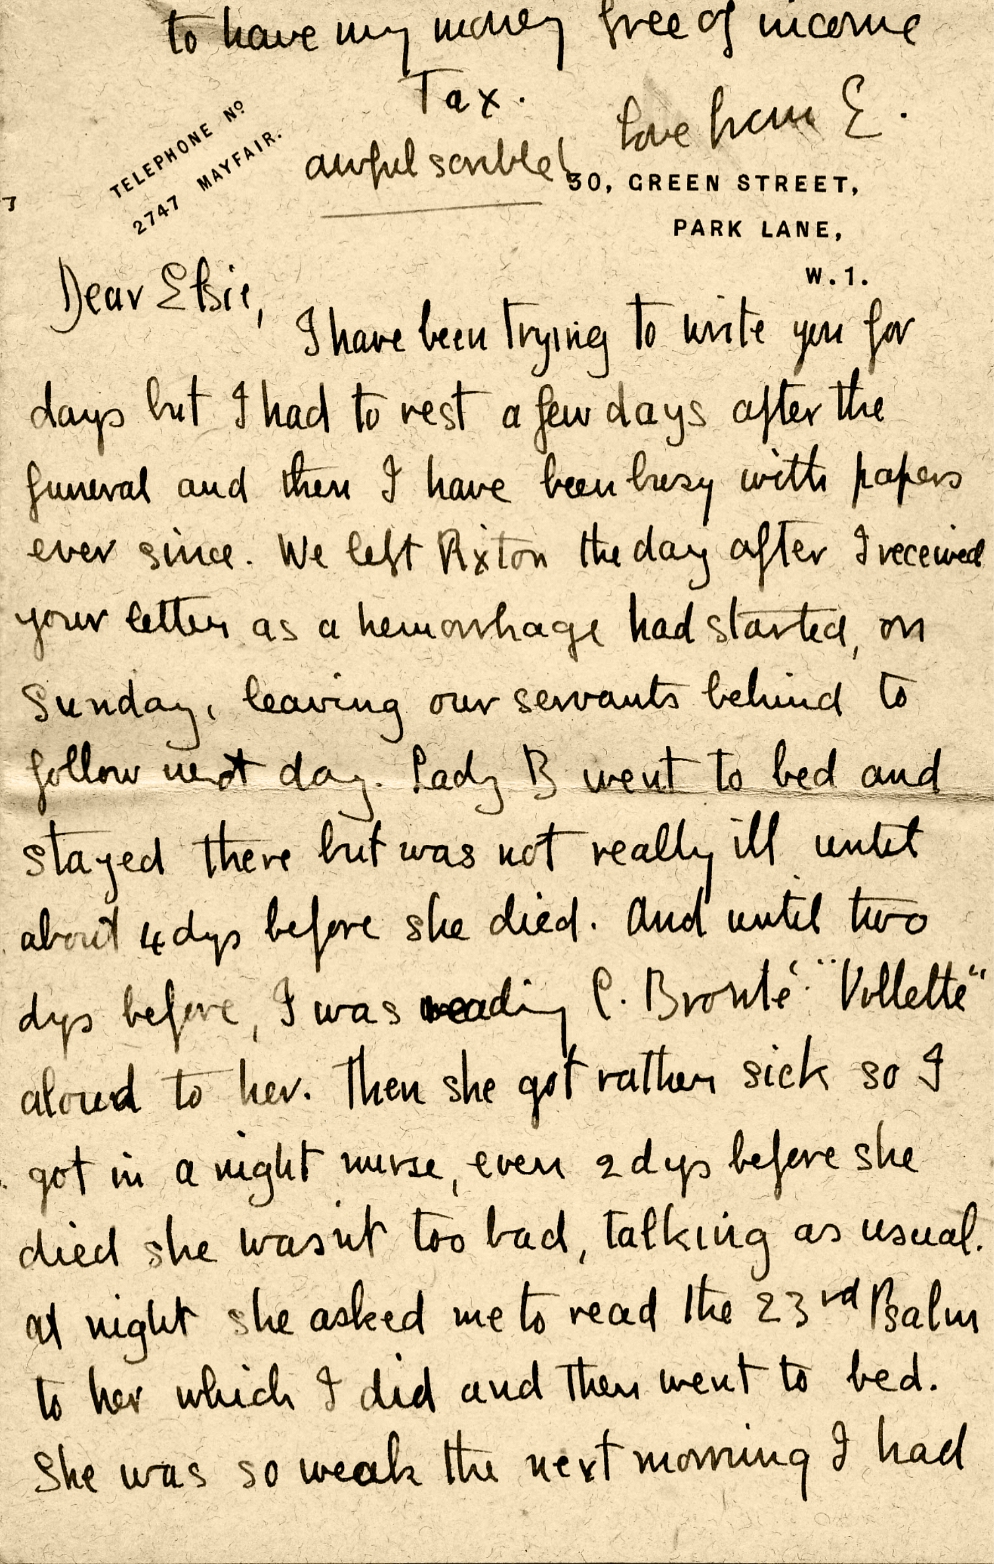 to have my money free of income
Tax.
love from E.
awful scribble!
TELEPHONE Nº
2747 MAYFAIR.
30, GREEN STREET,
PARK LANE,
W.1.
Dear Elsie,
I have been trying to write you for
days but I had to rest a few days after the
funeral and then I have been busy with papers
ever since. We left Rixton the day after I received
your letter as a hemorrhage had started, on
Sunday, leaving our servants behind to
follow next day. Lady B went to bed and
stayed there but was not really ill until
about 4 dys before she died. And until two
dys before, I was reading C. Bronté' "Vilette"
aloud to her. Then she got rather sick so I
got in a night nurse, even 2 dys before she
died she wasn't too bad, talking as usual.
At night she asked me to read the 23rd Psalm
to her which I did and then went to bed.
She was so weak the next morning I had